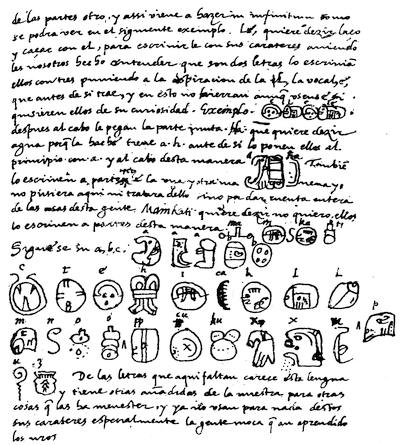 de las partes otro, y assi viene a hazer in infinitum como
se podra ver en el siguiente exemplo. Lé, quiere dezir laço
y caçar con el, para escrivirle con sus carateres aviendo
les nosotros hecho entender que son dos letras lo escrivian
ellos con tres puniendo a la aspiracion de la l, la vocal é,
que antes de si trae, y en esto no hierran aunq̃ usense si
quisieren ellos de su curiosidad. Exemplo.
despues al cabo le pegan la parte junta. Ha que quiere dezir
agua porq̃ la haché tiene a. h. ante de si lo ponen ellos al
principio con a. y al cabo desta manera ha Tambiẽ
lo escriven a partes de la una y otra ma nera yo
no pusiera aqui ni tratara dello sino por dar cuenta entera
de las cosas desta gente. Mainkati quiere dezir no quiero, ellos
lo escriven a partes desta manera ma i n ka ti
Siguese su a, b, c. a a a b b
c t é h i ca k l l
m n o o pp cu ku x x u p
u z
De las letras que aqui faltan carece esta lengua
y tiene otras añadidas de la nuestra para otras
cosas q̃ las ha menester, y ya no usan para nada destos
sus carateres especialmente la gente moça q̃ an aprendido
los nros